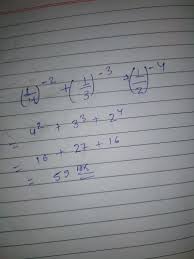 (1/4)^-2 + (1/3)^-3 + (1/2)^-4
= 4² + 3³ + 2⁴
= 16 + 27 + 16
= 59